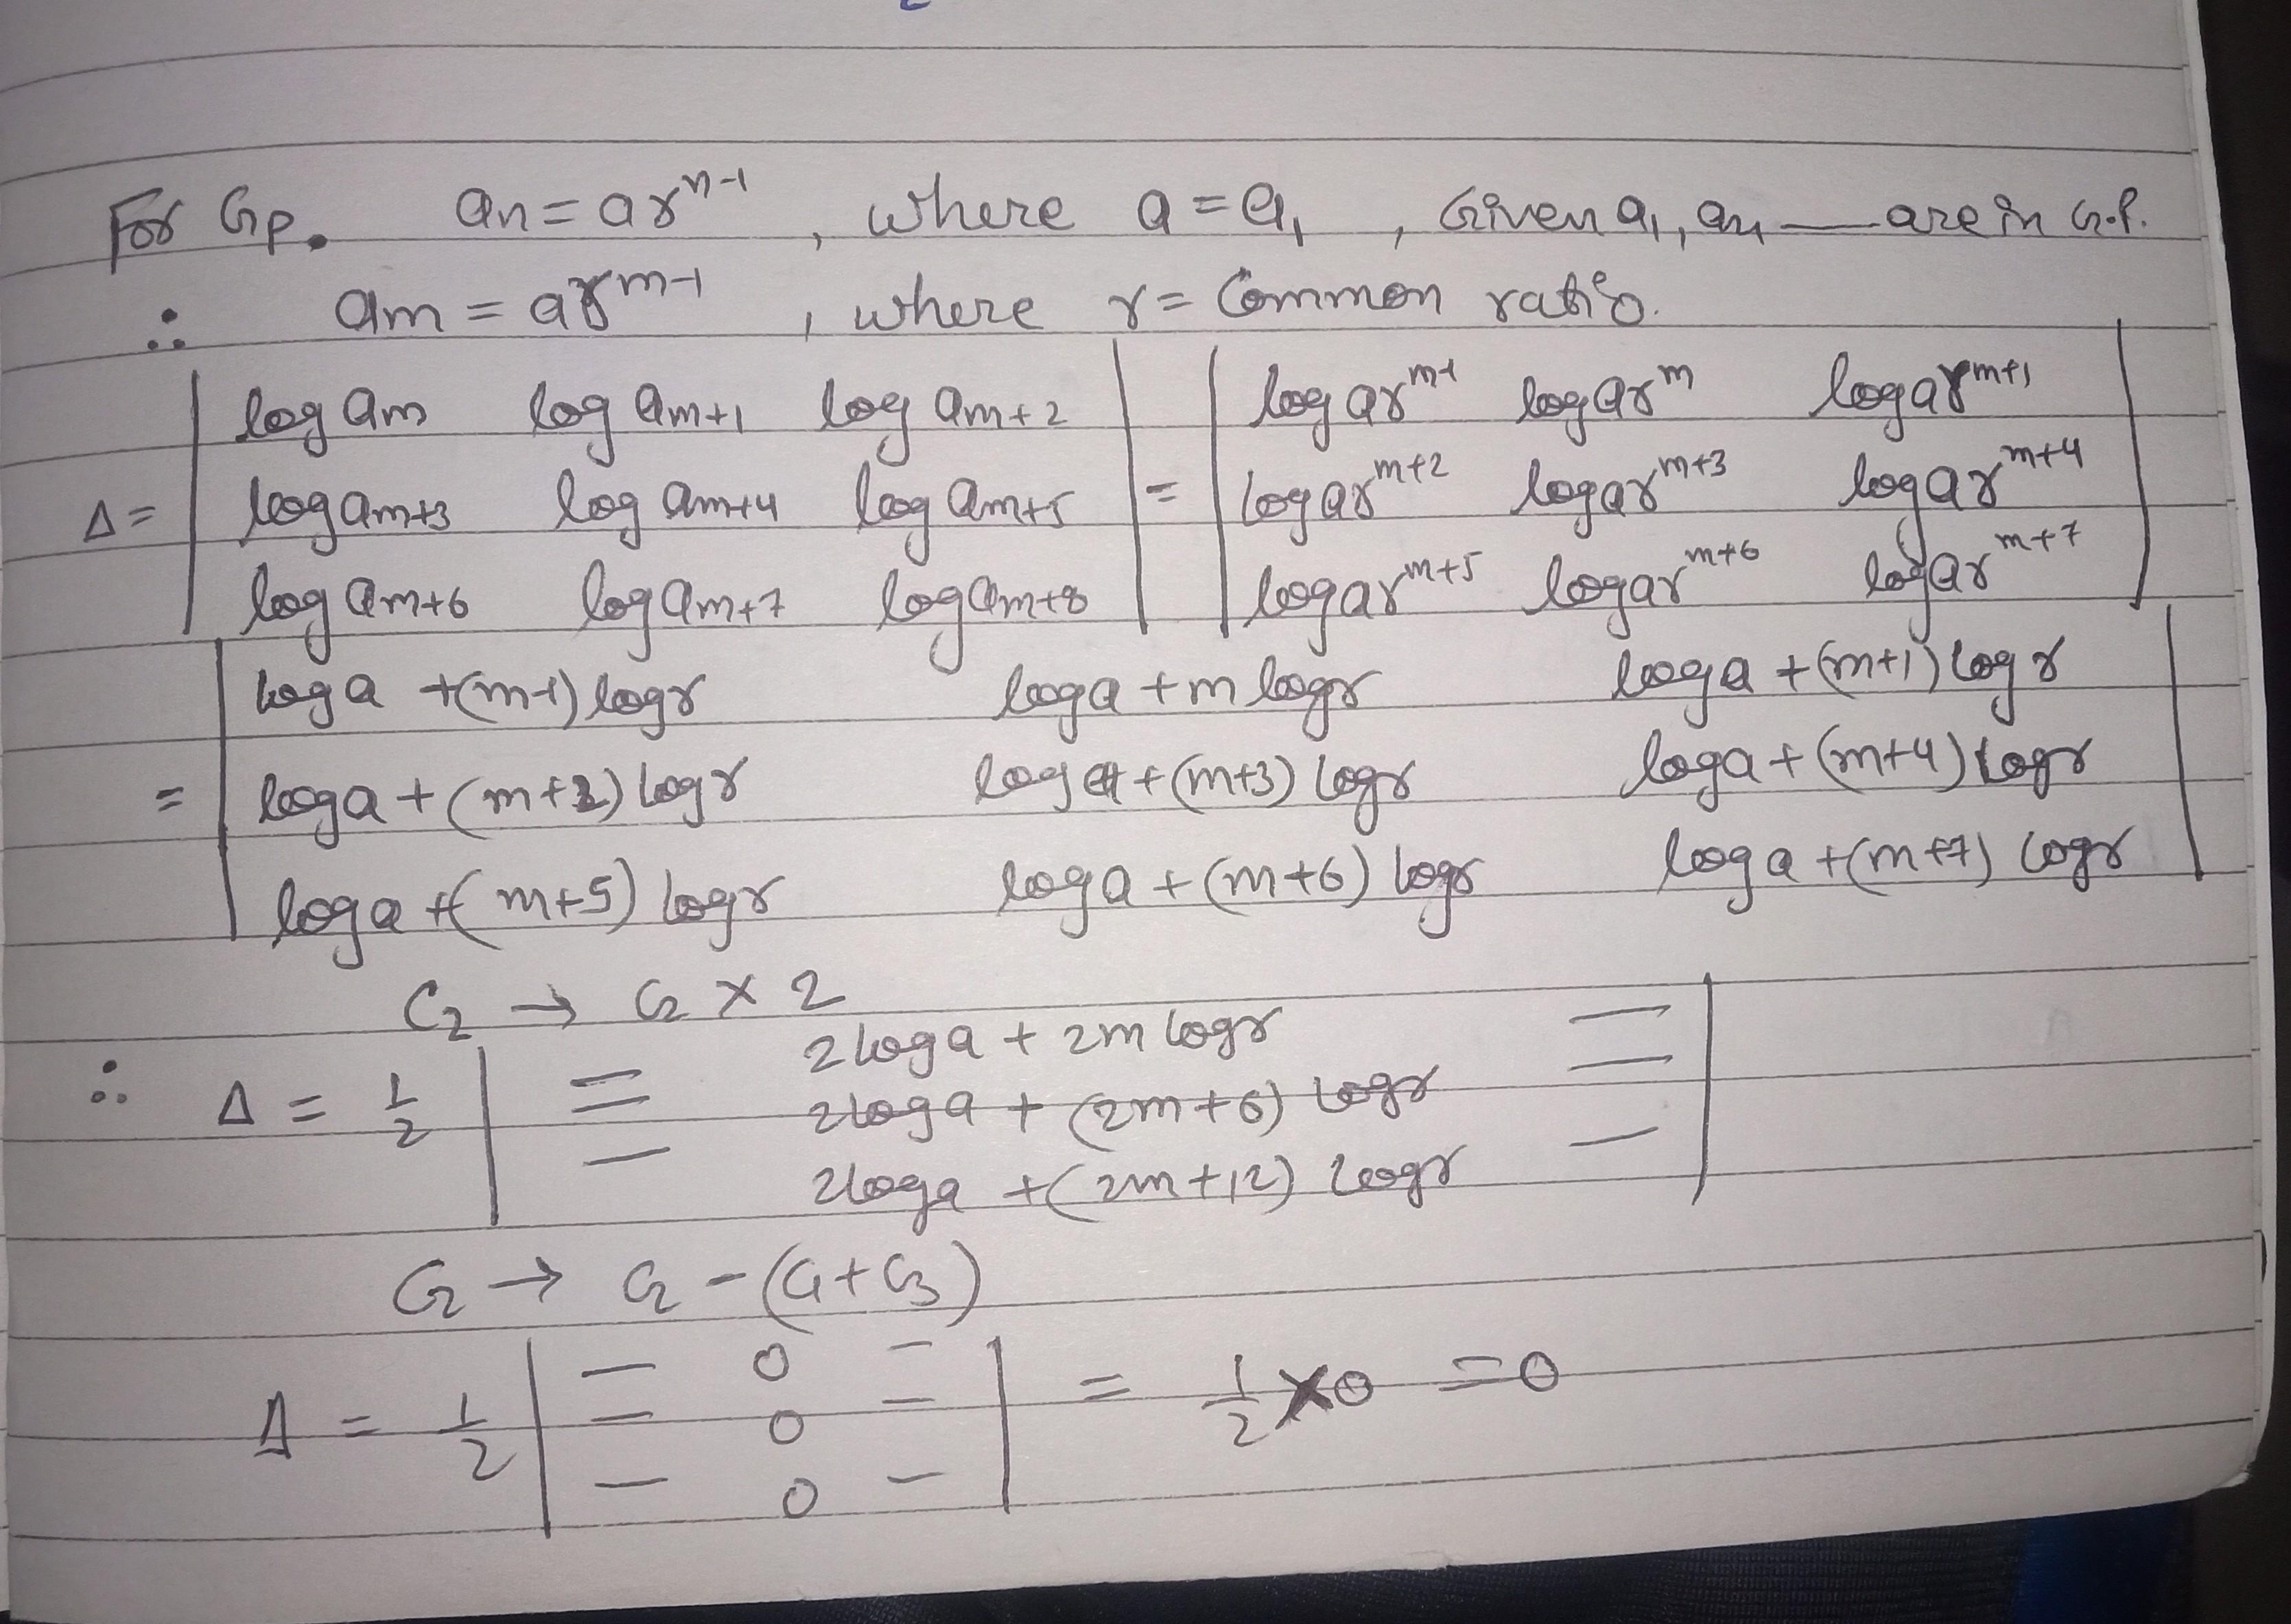 For Gp. an = ar^n-1 , where a = a1 , Given a1, a2, — are in G.P.
∴ am = ar^m-1 , where r = Common ratio.
Δ = | log am log am+1 log am+2 | = | log ar^m-1 log ar^m log ar^m+1 |
| log am+3 log am+4 log am+5 | | log ar^m+2 log ar^m+3 log ar^m+4 |
| log am+6 log am+7 log am+8 | | log ar^m+5 log ar^m+6 log ar^m+7 |
= | log a + (m-1) log r log a + m log r log a + (m+1) log r |
| log a + (m+2) log r log a + (m+3) log r log a + (m+4) log r |
| log a + (m+5) log r log a + (m+6) log r log a + (m+7) log r |
C2 → C2 × 2
∴ Δ = 1/2 | — 2 log a + 2m log r — |
| — 2 log a + (2m+6) log r — |
| — 2 log a + (2m+12) log r — |
C2 → C2 - (C1 + C3)
Δ = 1/2 | — 0 — | = 1/2 × 0 = 0
| — 0 — |
| — 0 — |